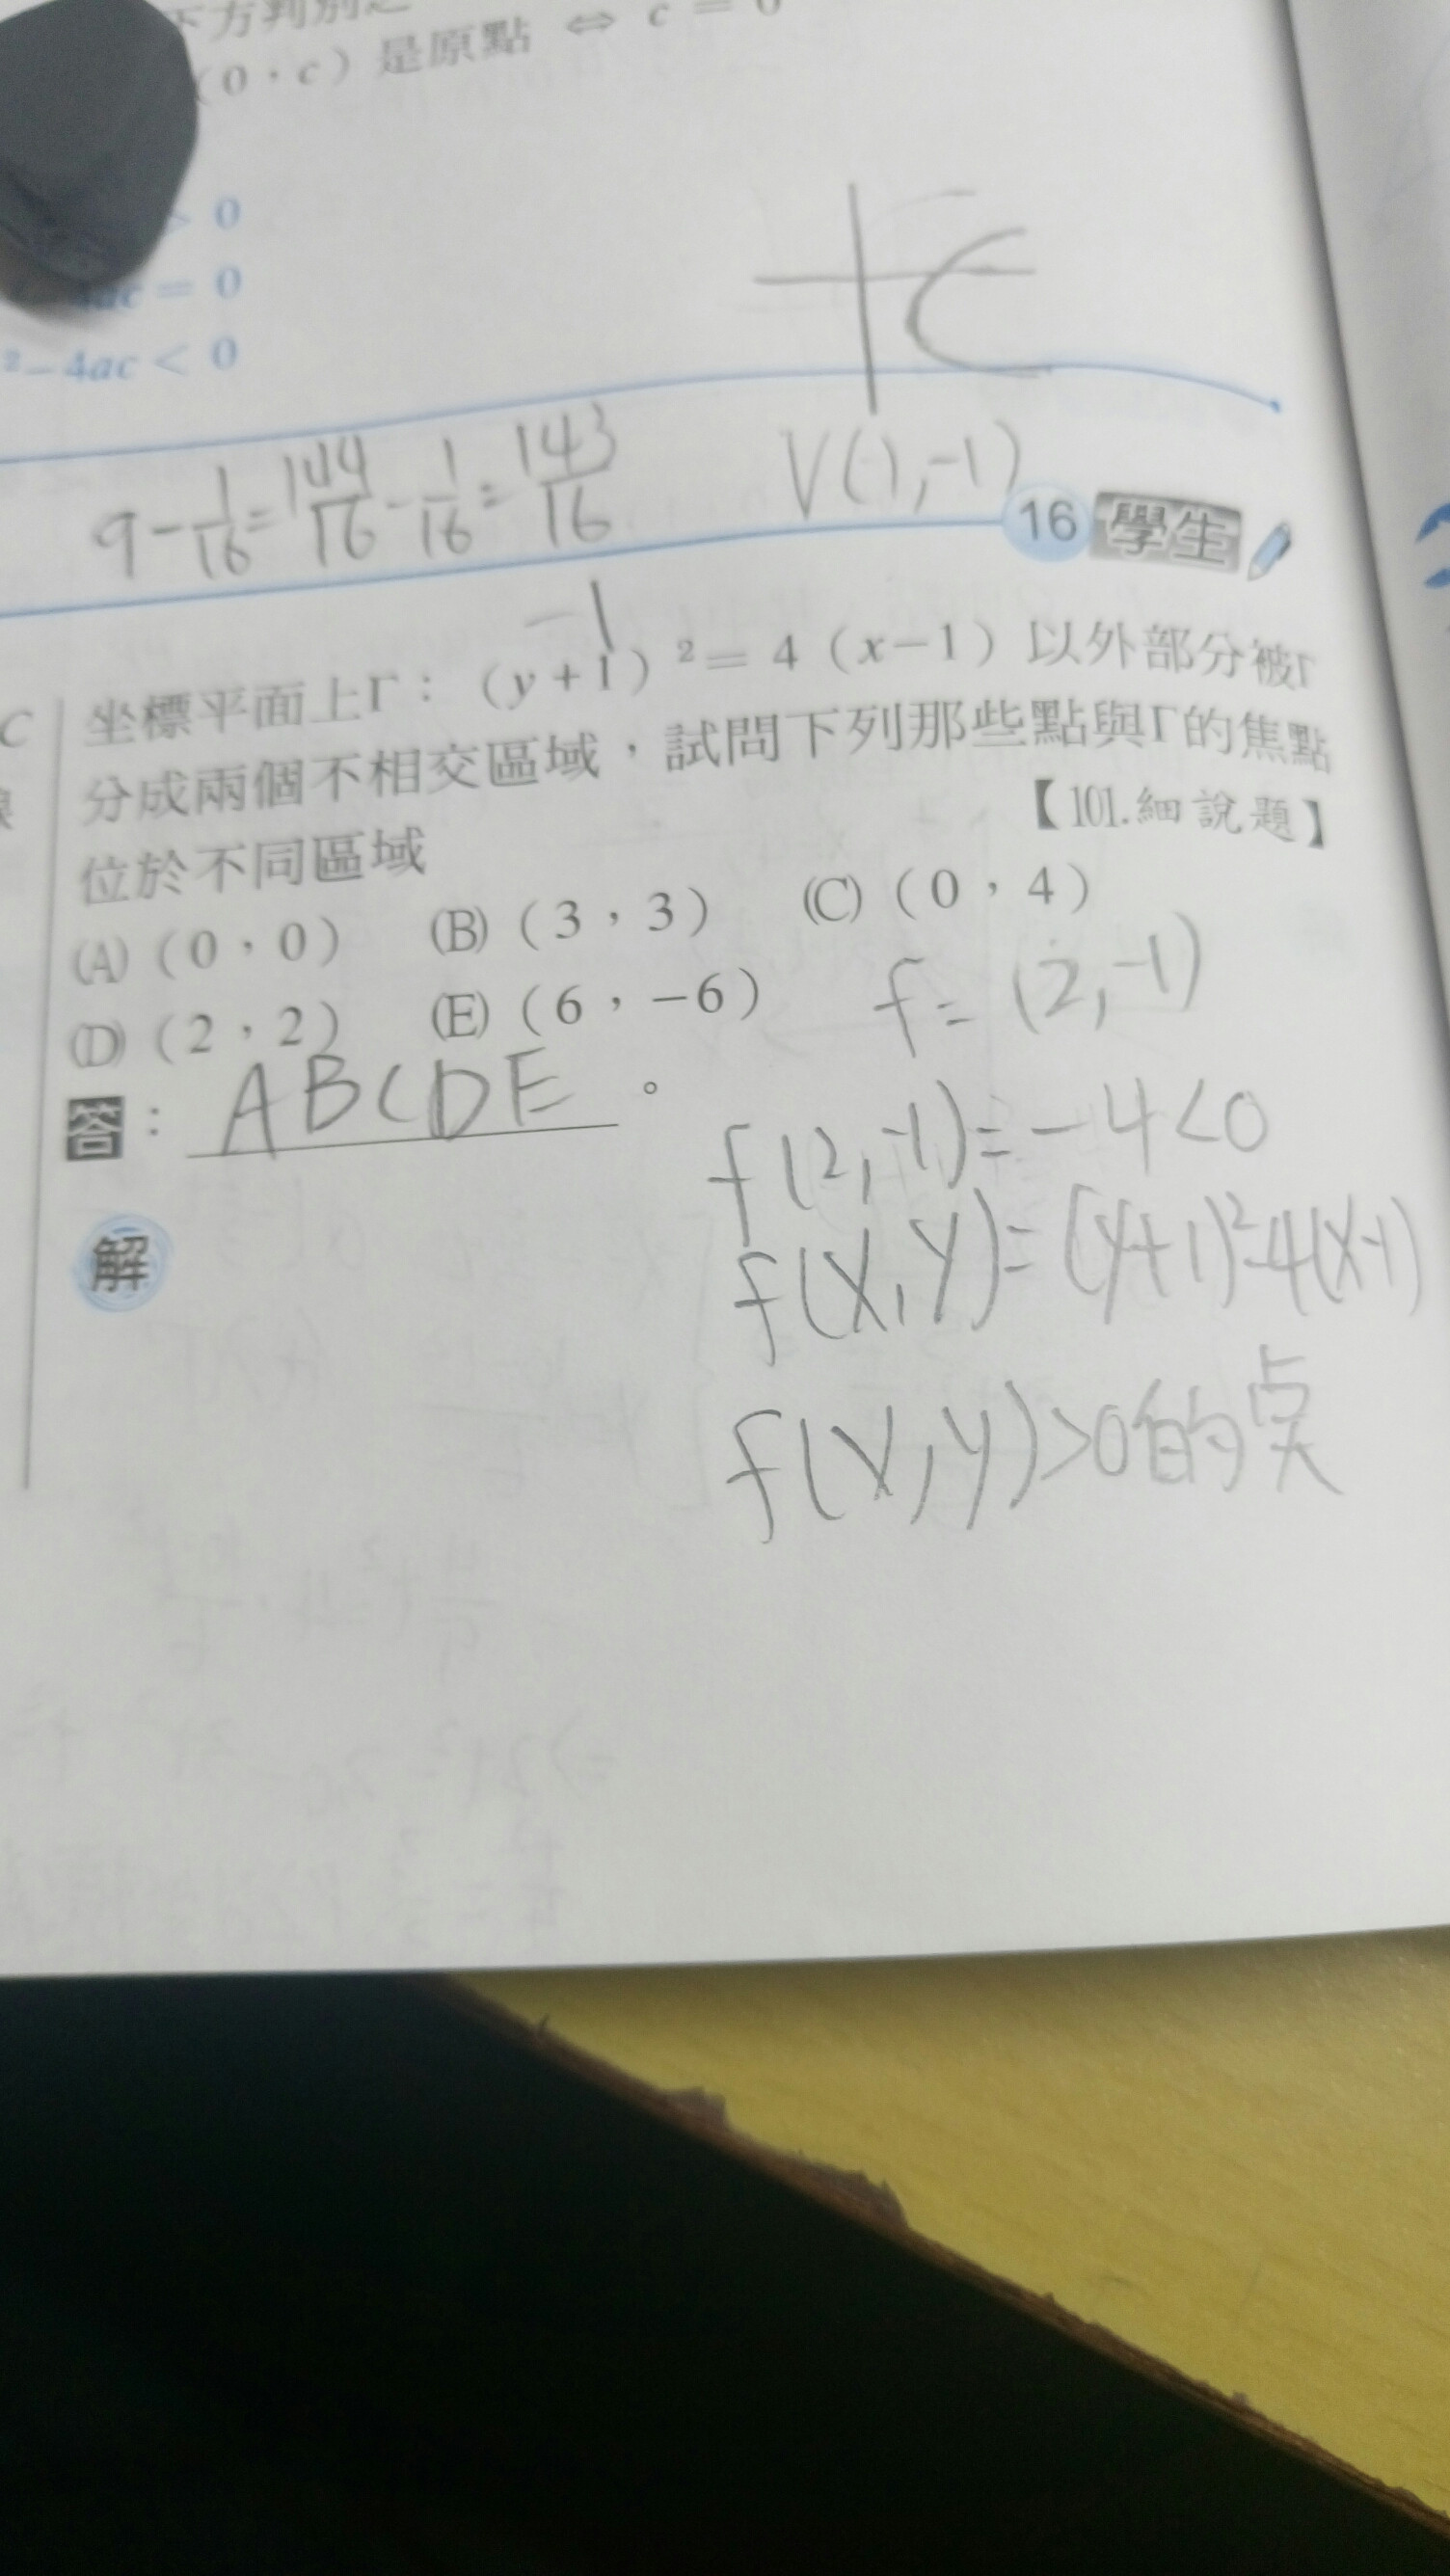 下方判別之
(0，c) 是原點 ⇔ c = 0
> 0
4ac = 0
²－4ac < 0
9－1/16 = 144/16－1/16 = 143/16
V(1,-1)
16 學生
-1
坐標平面上Γ：(y+1)²＝4(x－1) 以外部分被Γ
分成兩個不相交區域，試問下列那些點與Γ的焦點
位於不同區域
【101.細說題】
(A) (0，0) (B) (3，3) (C) (0，4)
(D) (2，2) (E) (6，－6)
f = (2,-1)
答：ABCDE。
f(2,-1)=-4<0
解
f(x,y)=(y+1)²-4(x-1)
f(x,y)>0的点